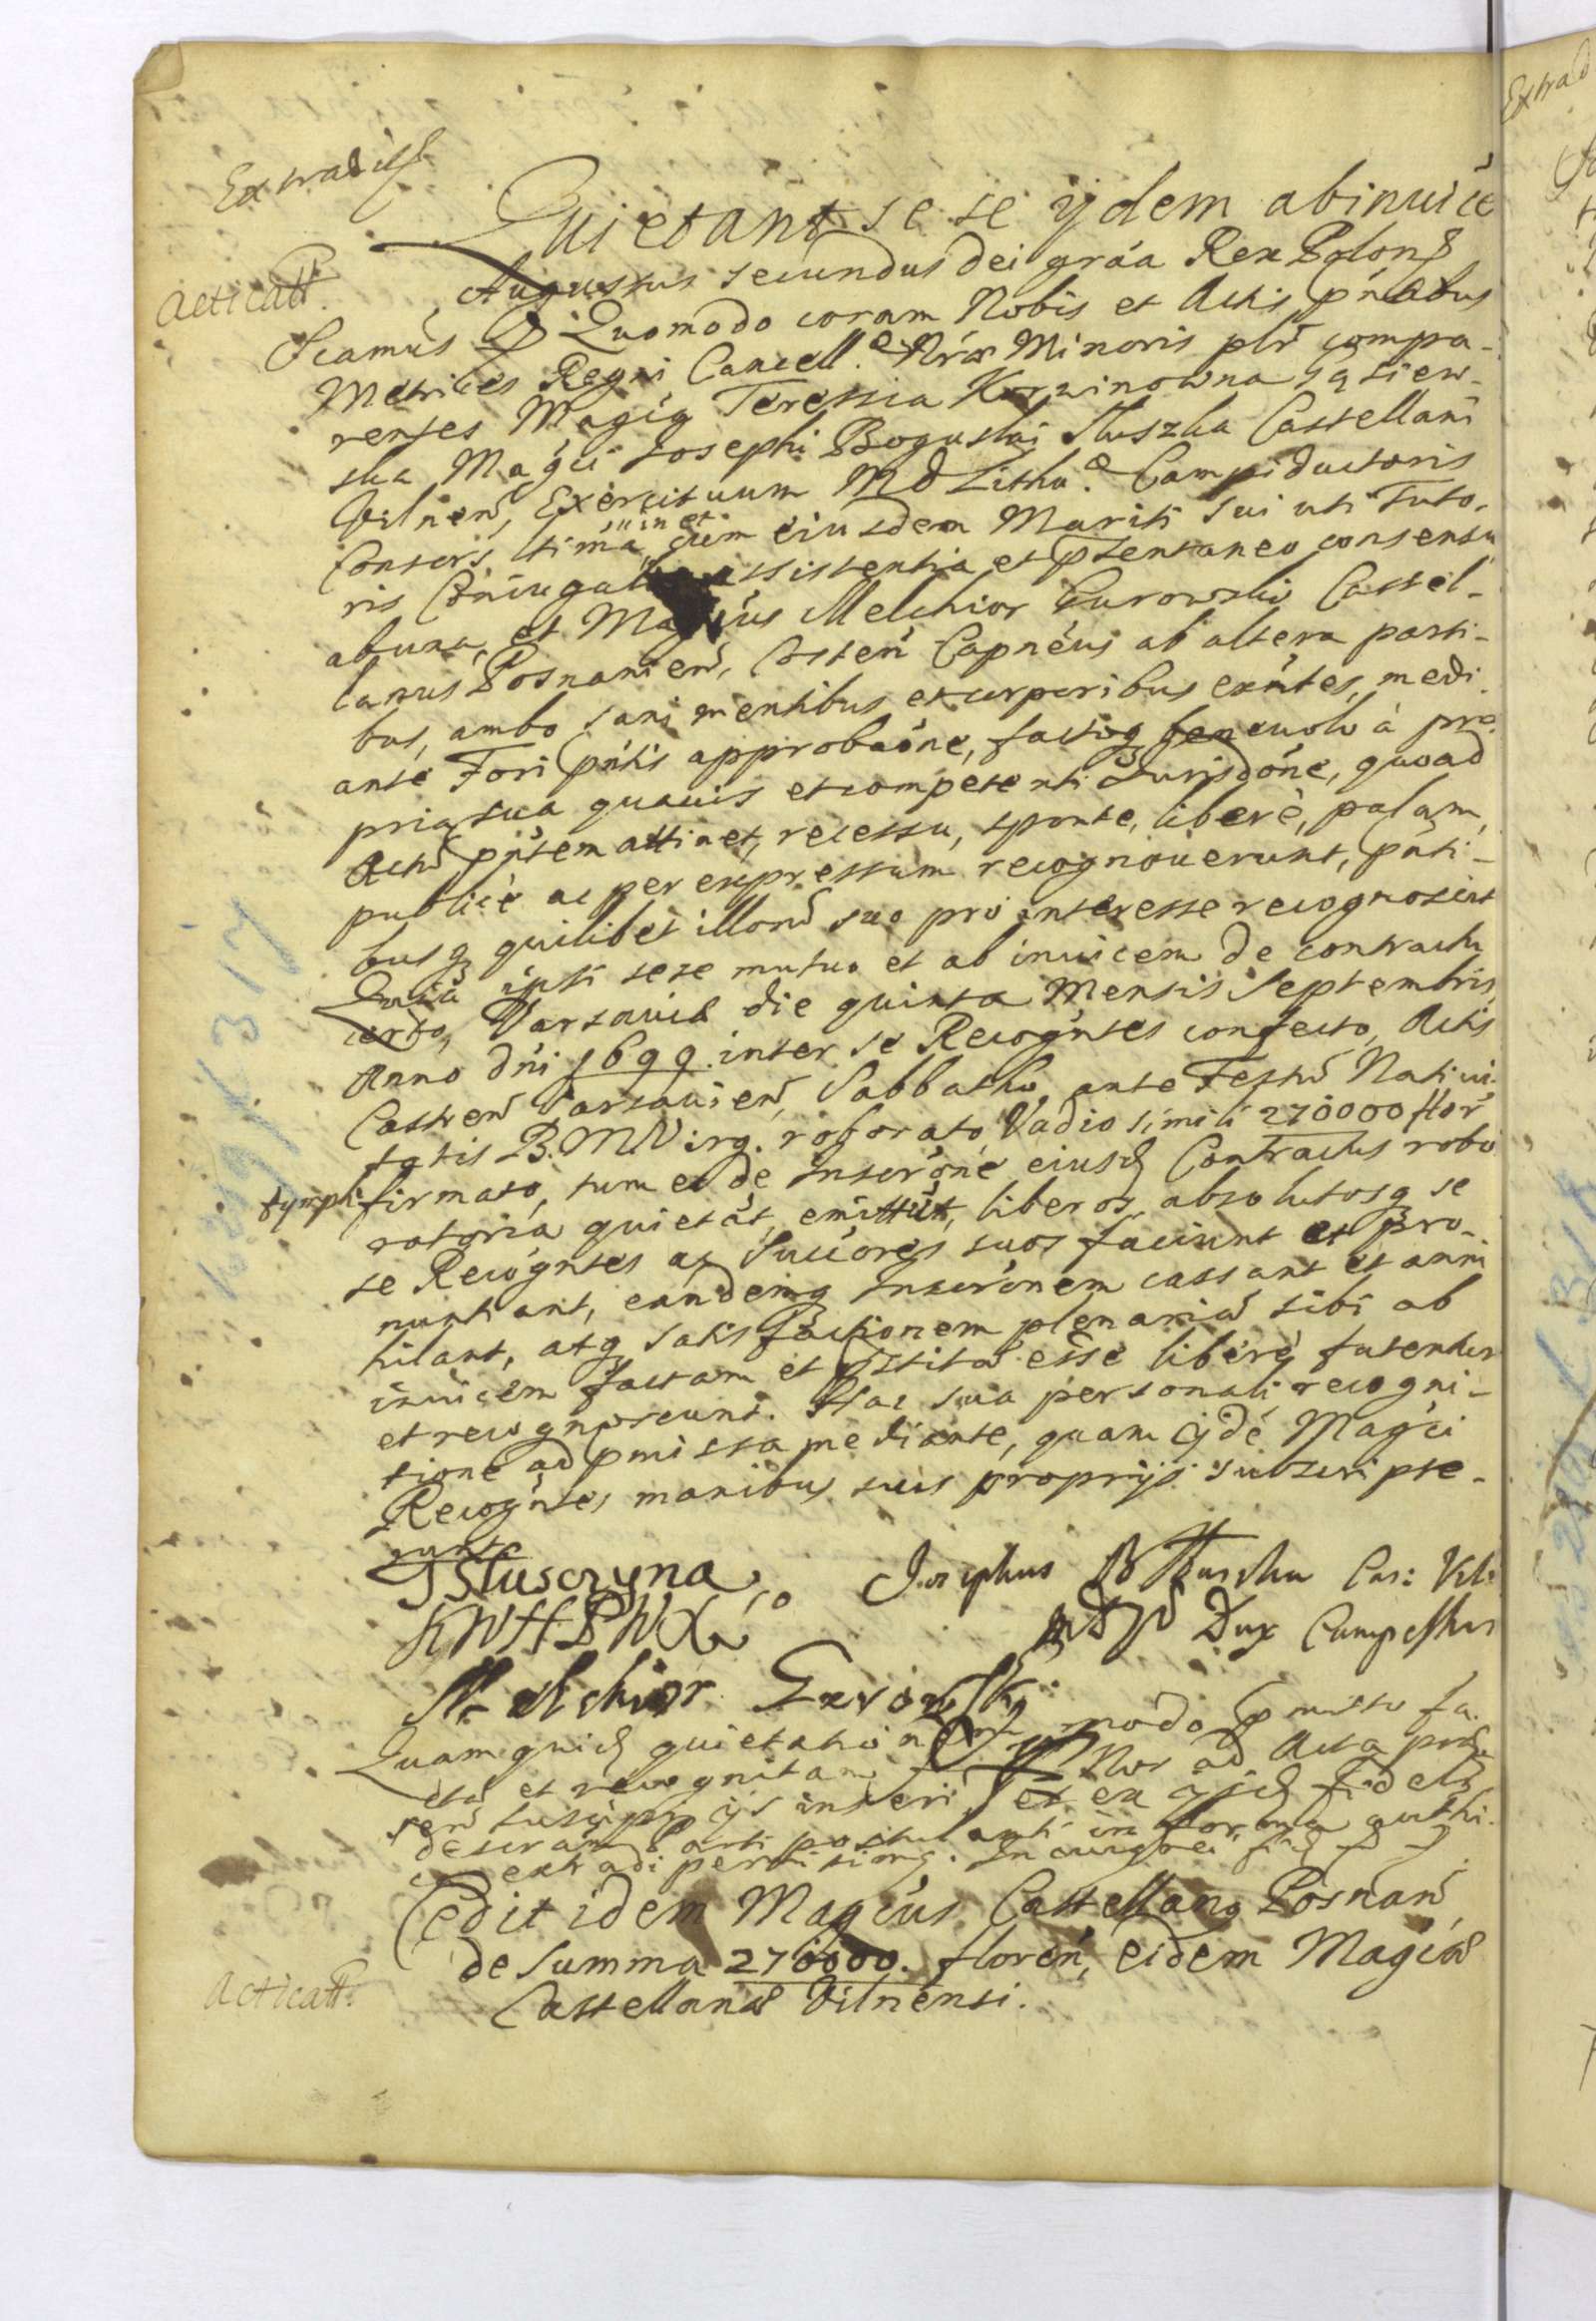 Extradit
Quietant se se ijdem abinuicē
Acticatt.
Augustus secundus dei grãa Rex Polon
Scamūs Quomodo coram Nobis et Actis pñtibus
Metrices Regni Cancell. Nrae Minoris plr compa-
rentes Magca Teressia Korwinowna Gąsiew-
ska Magci Josephi Boguslai Sluszka Castellani
Vilnen, Exercituum M D Lithu. Campiductoris
Consors, tima, cum in et eiusdem Mariti sui uti Tuto-
ris Coniugal assistentia et pzentaneo consensu
ab una, et Magcus Melchior Gurowski Castel-
lanus Posnanien, Costen Capneus ab altera parti-
bus, ambo sani mentibus et corporibus exntes, medi
ante Fori pntis approbaōne, factoq beneuolo à pro
pria sua quauis et competenti Jurisdōne, quoad
Actū pntem attinet, recessu, sponte, liberè, palam,
publicè ac per expressum recognouerunt, pnti-
busq quilibet illorū suo pro interesse recognoscūt
Quia ipsi sese mutuo et ab inuicem de contractu
certo, Varsauiae die quinta Mensis Septembris
Anno dni 1699. inter se Recogntes confecto, Actis
Castren Varsauien, Sabbatho ante Festū Natiui-
tatis B. M V irg. roborato, Vadio simili 270000 flor
tymph firmato, tum et de Inscrōne eiusd Contractus robo
ratoria quietāt, emittūt, liberos absolutosq se
se Recogntes ac Succōres suos faciunt et pro-
nuntiant, eandemq Inscrōnem cassant et anni
hilant, atq satisfactionem plenariā sibi ab
inuicem factam et pstitā esse liberè fatentur
et recognoscunt. Hac sua personali recogni-
tione ad pmissa mediante, quam ijdē Magci
Recogntes manibus suis proprijs subscripse-
runt.
TSłuscryna Josephus B Słuszka Cas: Vil:
KWHPWXL MDL Dux Campestris
Melchior Gurowski
Quam quid quietationem modo pmisso fa.
ctā et recognitam Nos ad Acta pñ
sen suscipi, ijs inseri et ex ijsd fideliter
descram parti postulanti in forma authi.
extradi permisimus. In cuius rei fid
Cedit idem Magcus Castellanus Posnan
de Summa 270000. floren, eidem Magcae
Castellanae Vilnensi.
Acticatt.
Extrad